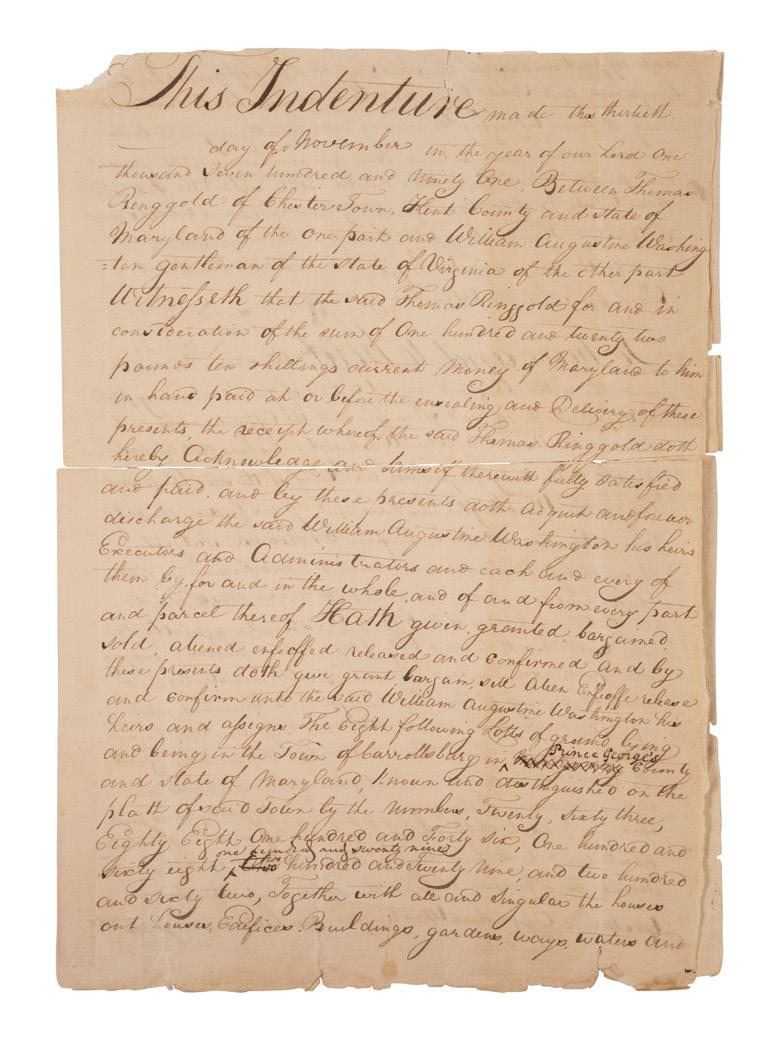 This Indenture made this thirtieth
day of November in the year of our Lord One
thousand seven hundred and Ninety One, Between Thomas
Ringgold of Chester Town, Kent County and state of
Maryland of the one part and William Augustine Washing
=ton gentleman of the state of Virginia of the other part
Witnesseth that the said Thomas Ringgold for and in
consideration of the sum of One hundred and twenty two
pounds ten shillings current Money of Maryland to him
in hand paid at or before the ensealing and Delivery of these
presents, the receipt whereof the said Thomas Ringgold doth
hereby Acknowledge, and himself therewith fully satisfied
and paid. and by these presents doth acquit and forever
discharge the said William Augustine Washington his heirs
Executors and Administrators and each and every of
them by, for and in the whole, and of and from every part
and parcel thereof. Hath given, granted, bargained,
sold, aliened enfeoffed released and confirmed and by
these presents doth give, grant bargain, sell Alien Enfeoffe release
and confirm unto the said William Augustine Washington his
heirs and assigns. The Eight following Lotts of ground, lying
and being in the Town of Carrollsburg in Prince George's County
and state of Maryland, known and distinguished on the
platt of said Town by the Numbers, Twenty, sixty three,
Eighty Eight, One hundred and Forty six, One hundred and
sixty eight, one hundred and seventy nine two hundred and Twenty Nine, and two hundred
and sixty two, Together with all and singular the houses
out houses, Edifices, Buildings, gardens, ways, waters and